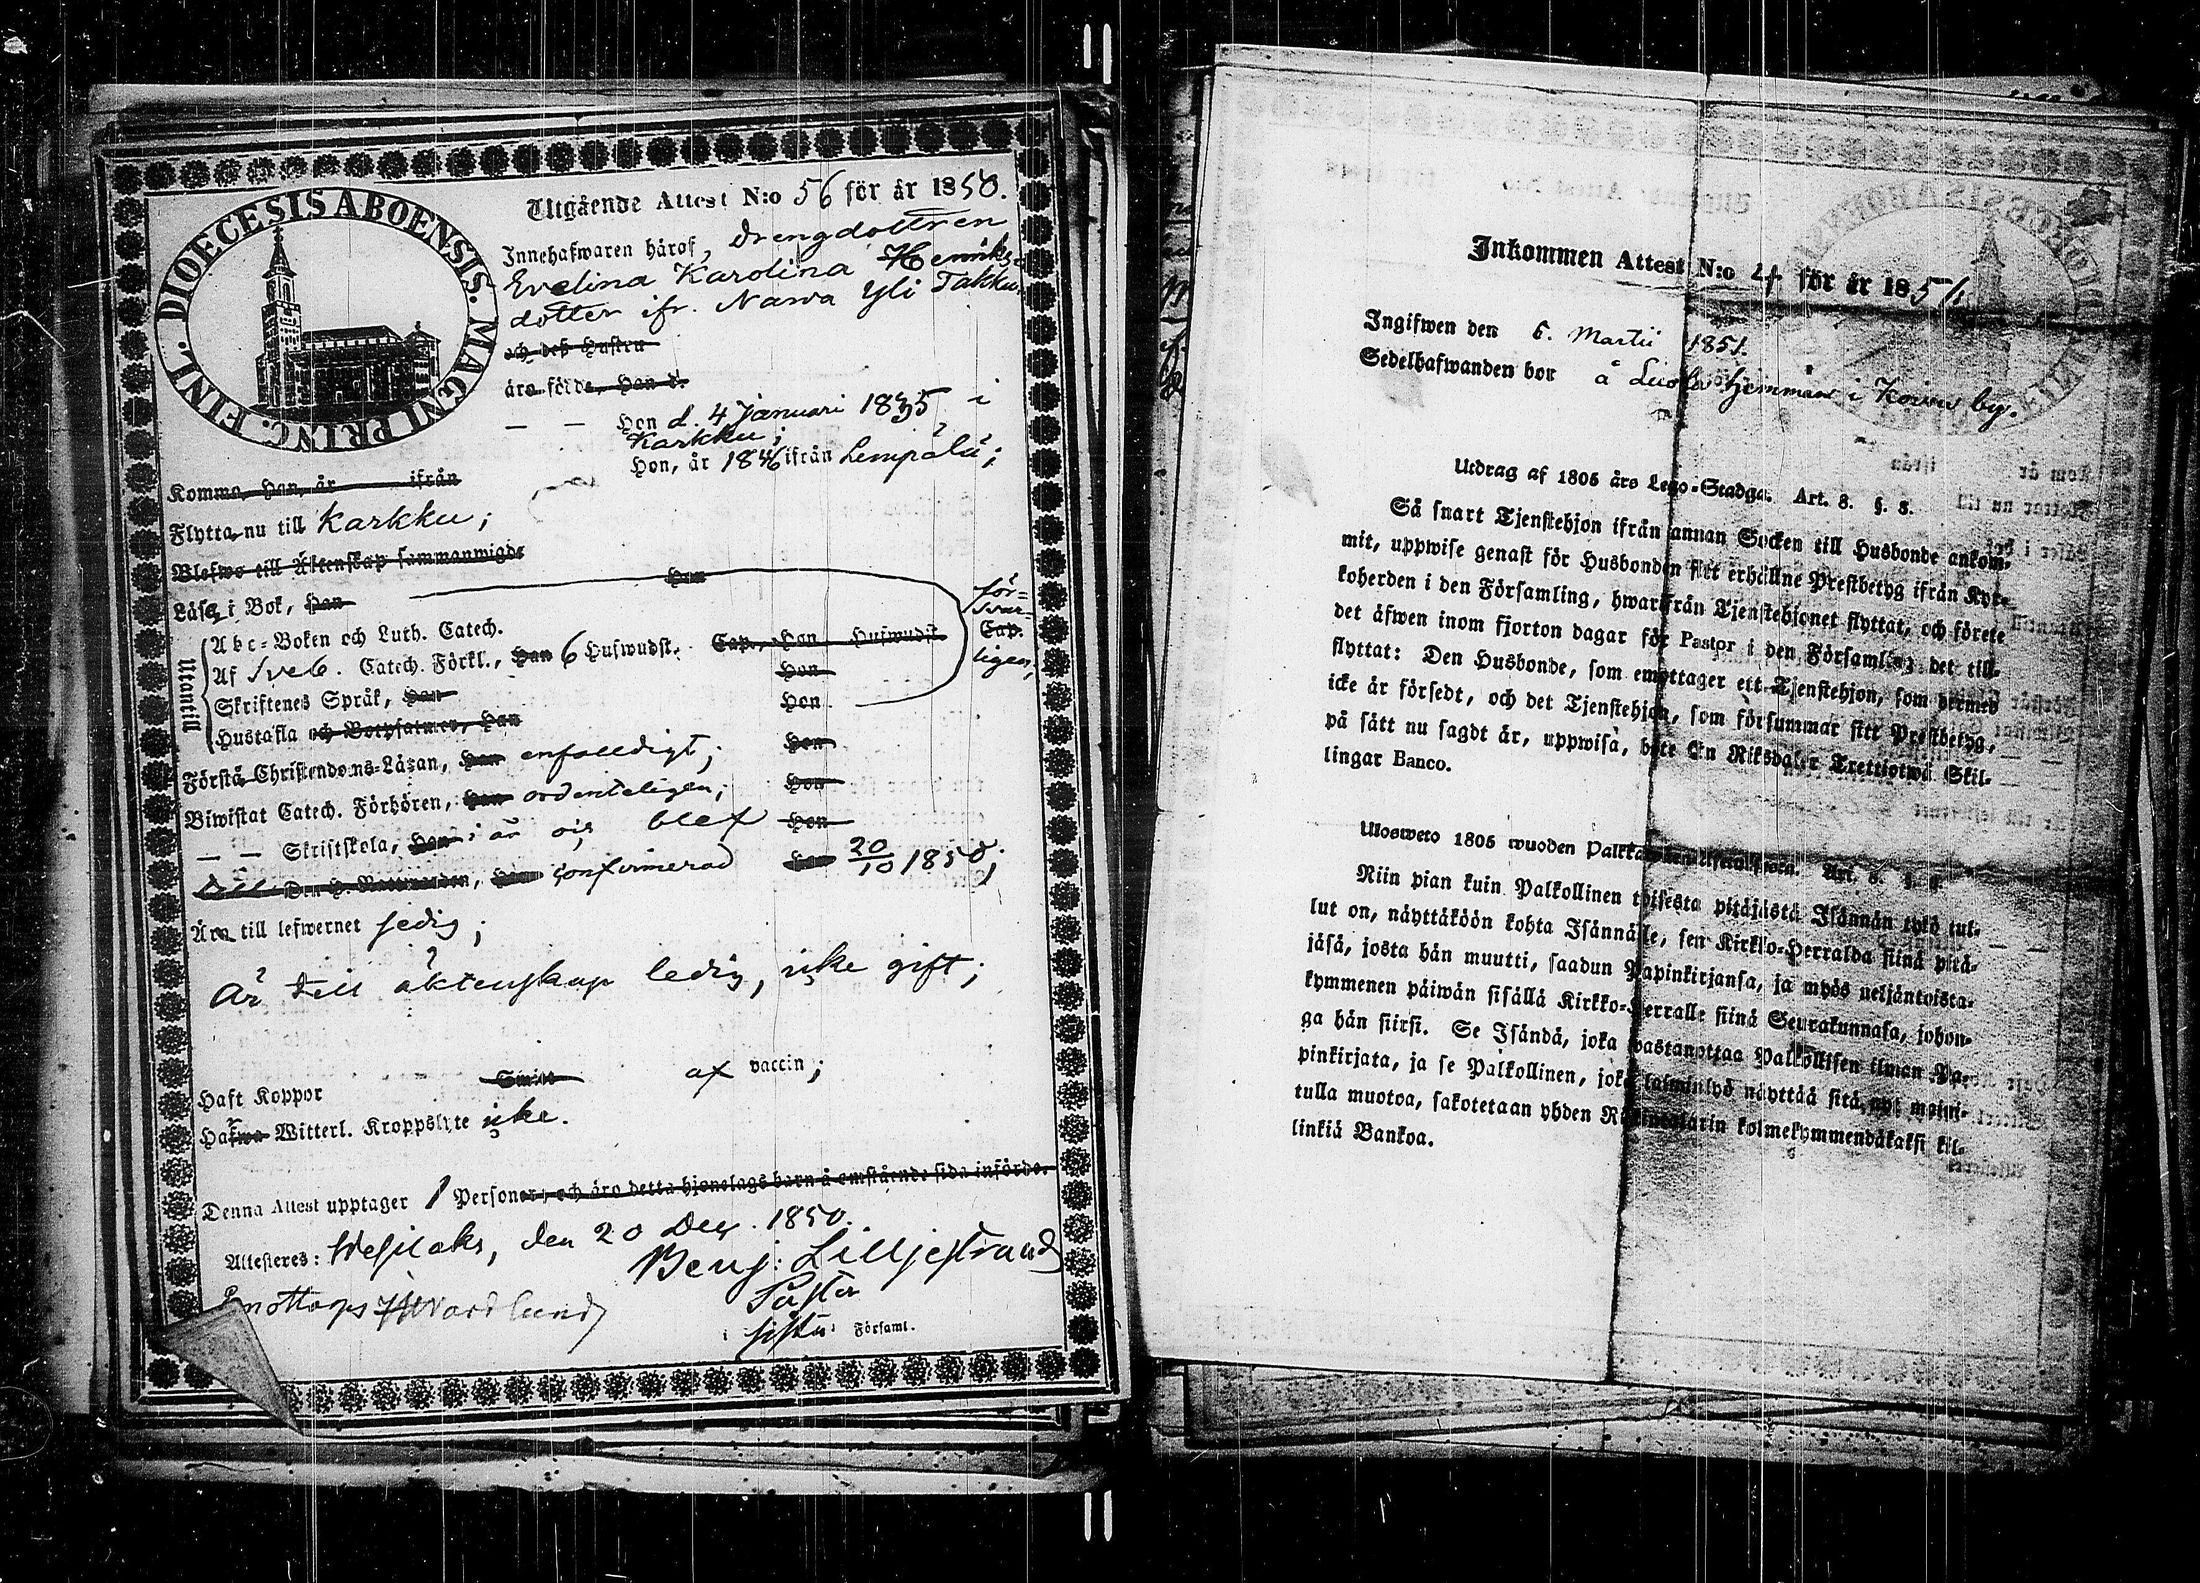 DIOECESIS ABOENSIS. MAGNI PRINC. FINL.
Utgående Attest N:o 56 för år 1850.
Innehafwaren häraf, drengdottren
Evelina Karolina Henriks-
dotter ifr. Narva Yli Takku
och deß Hustru
äro födde, Han d.
— — Hon d. 4 Januari 1835 i
Karkku;
Hon, år 1846 ifrån Lempälä;
Komma, Han, år ifrån
Flytta nu till Karkku;
Blefwo till Äktenskap sammanwigde
Läsa i Bok, Han Hon
Utantill
Abc-Boken och Luth. Catech.
Af Sveb. Catech. Förkl., Han 6 Hufwudst. Cap., Hon Hufwudst. Cap.
för-
svar-
ligen;
Skriftenes Språk, Han Hon
Hustafla och Botpsalmer, Han Hon
Förstå Christendoms-Läran, Han enfaldigt; Hon
Biwistat Catech. Förhören, Han ordenteligen; Hon
— — Skriftskola, Han i år och blef Hon
Den H. Nattwarden, Han confirmerad Hon 20/10 1850;
Äro till lefwernet sedig;
Är till äktenskap ledig, icke gift;
Haft Koppor Smitt af vaccin;
Hafwa Witterl. Kroppslyte icke.
Denna Attest upptager 1 Personer, och äro detta hjonelags barn å omstående sida införde.
Attesteres: Wesilaks, den 20 Dec. 1850.
Benj: Lilljestrand
Pastor
i Församl.
Inkommen Attest N:o 24 för år 1851.
Ingifwen den 6. Martii 1851.
Sedelhafwanden bor å hemman i by.
Utdrag af 1805 års Lego-Stadga. Art. 8. §. 8.
Så snart Tjenstehjon ifrån annan Socken till Husbonde ankom-
mit, uppwise genast för Husbonden sitt erhållne Prestbetyg ifrån Kyr-
koherden i den Församling, hwarifrån Tjenstehjonet flyttat, och förete
det äfwen inom fjorton dagar för Pastor i den Församling det till-
flyttat: Den Husbonde, som emottager ett Tjenstehjon, som dermed
icke är försedt, och det Tjenstehjon, som försummar sitt Prestbetyg,
på sätt nu sagdt är, uppwisa, böte En Riksdaler Trettiotwå Skil-
lingar Banco.
Ulosweto 1805 wuoden Art. 8. §. 8.
Niin pian kuin Palkollinen toisesta pitäjästä Isännän tykö tul-
lut on, näyttäköön kohta Isännälle, sen Kirkko-Herralda siinä pitä-
jäsä, josta hän muutti, saadun Papinkirjansa, ja myös neljäntoista-
kymmenen päiwän sisällä Kirkko-Herralle siinä Seurakunnasa, johon-
ga hän siirsi. Se Isändä, joka wastanottaa Palkollisen ilman Pa-
pinkirjata, ja se Palkollinen, joka laiminlyö näyttää sitä, nyt maini-
tulla muotoa, sakotetaan yhden Riksintalarin kolmekymmendäkaksi kil-
linkiä Bankoa.